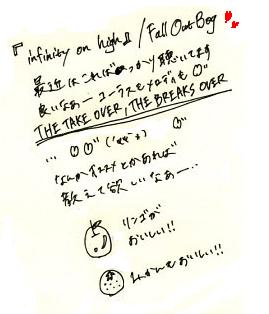 『infinity on high』/Fall Out Boy
最近はこればっかり聴いてます
良いなぁー コーラスもメロディも
THE TAKE OVER, THE BREAKS OVER
…
なんかオススメとかあれば
教えて欲しいなぁー…
リンゴが
おいしい!!
みかんもおいしい!!